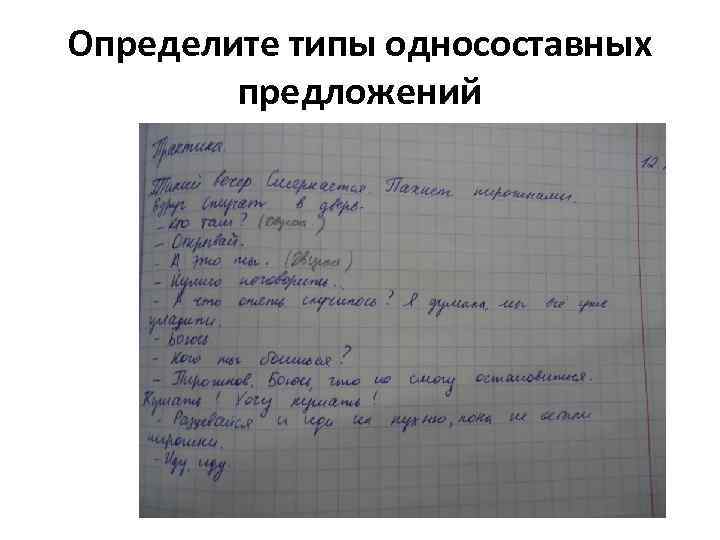 Определите типы односоставных
предложений
Практика.
12.
Тихий вечер Смеркается. Пахнет пирожками.
Вдруг стучат в дверь.
- Кто там? (Двусост)
- Открывай.
- А это ты. (Двусост)
- Нужно поговорить.
- А что опять случилось? Я думала, мы всё уже
уладили.
- Боюсь
- Кого ты боишься?
- Пирожков. Боюсь, что не смогу остановиться.
Кушать! Хочу кушать!
- Раздевайся и иди на кухню, пока не остыли
пирожки.
- Иду, иду.